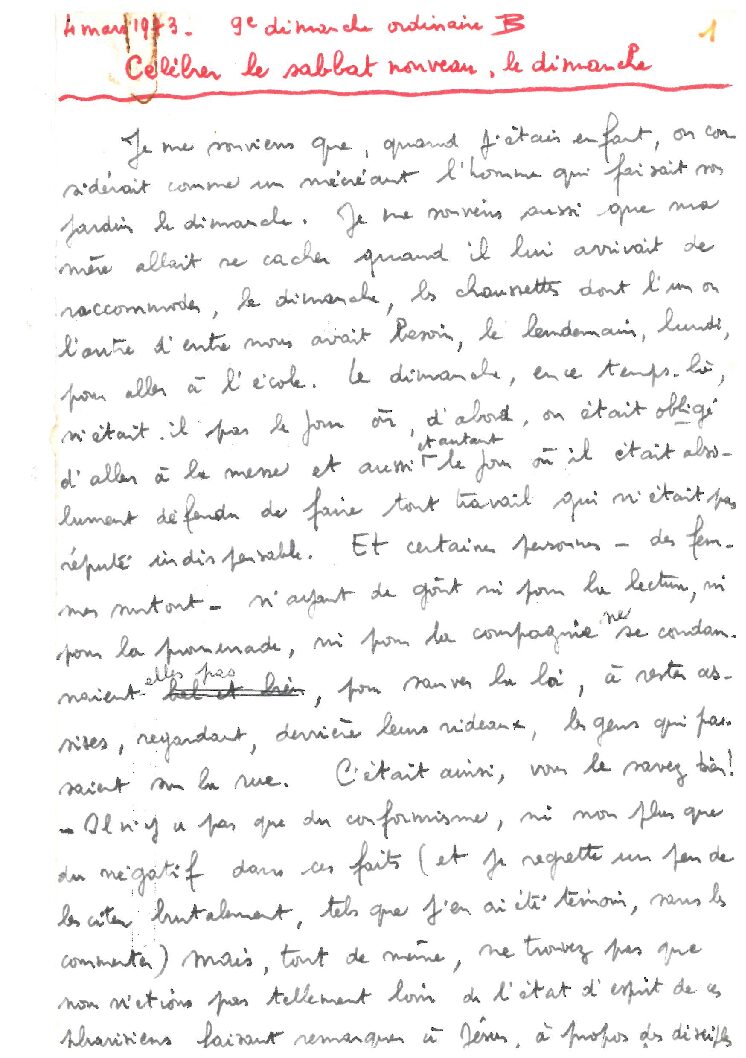 4 mars 1973. 9e dimanche ordinaire B 1
Célébrer le sabbat nouveau, le dimanche
Je me souviens que, quand j'étais enfant, on con-
sidérait comme un mécréant l'homme qui faisait son
jardin le dimanche. Je me souviens aussi que ma
mère allait se cacher quand il lui arrivait de
raccommoder, le dimanche, les chaussettes dont l'un ou
l'autre d'entre nous avait besoin, le lendemain, lundi,
pour aller à l'école. Le dimanche, en ce temps-là,
n'était-il pas le jour où, d'abord, on était obligé
d'aller à la messe et aussi et autant le jour où il était abso-
lument défendu de faire tout travail qui n'était pas
réputé indispensable. Et certaines personnes - des fem-
mes surtout - n'ayant de goût ni pour la lecture, ni
pour la promenade, ni pour la compagnie ne se condam-
naient elles pas bel et bien, pour sauver la loi, à rester as-
sises, regardant, derrière leurs rideaux, les gens qui pas-
saient sur la rue. C'était ainsi, vous le savez bien!
- Il n'y a pas que du conformisme, ni non plus que
du négatif dans ces faits (et je regrette un peu de
les citer brutalement, tels que j'en ai été témoin, sans les
commenter) mais, tout de même, ne trouvez pas que
nous n'étions pas tellement loin de l'état d'esprit de ces
pharisiens faisant remarquer à Jésus, à propos des disciples